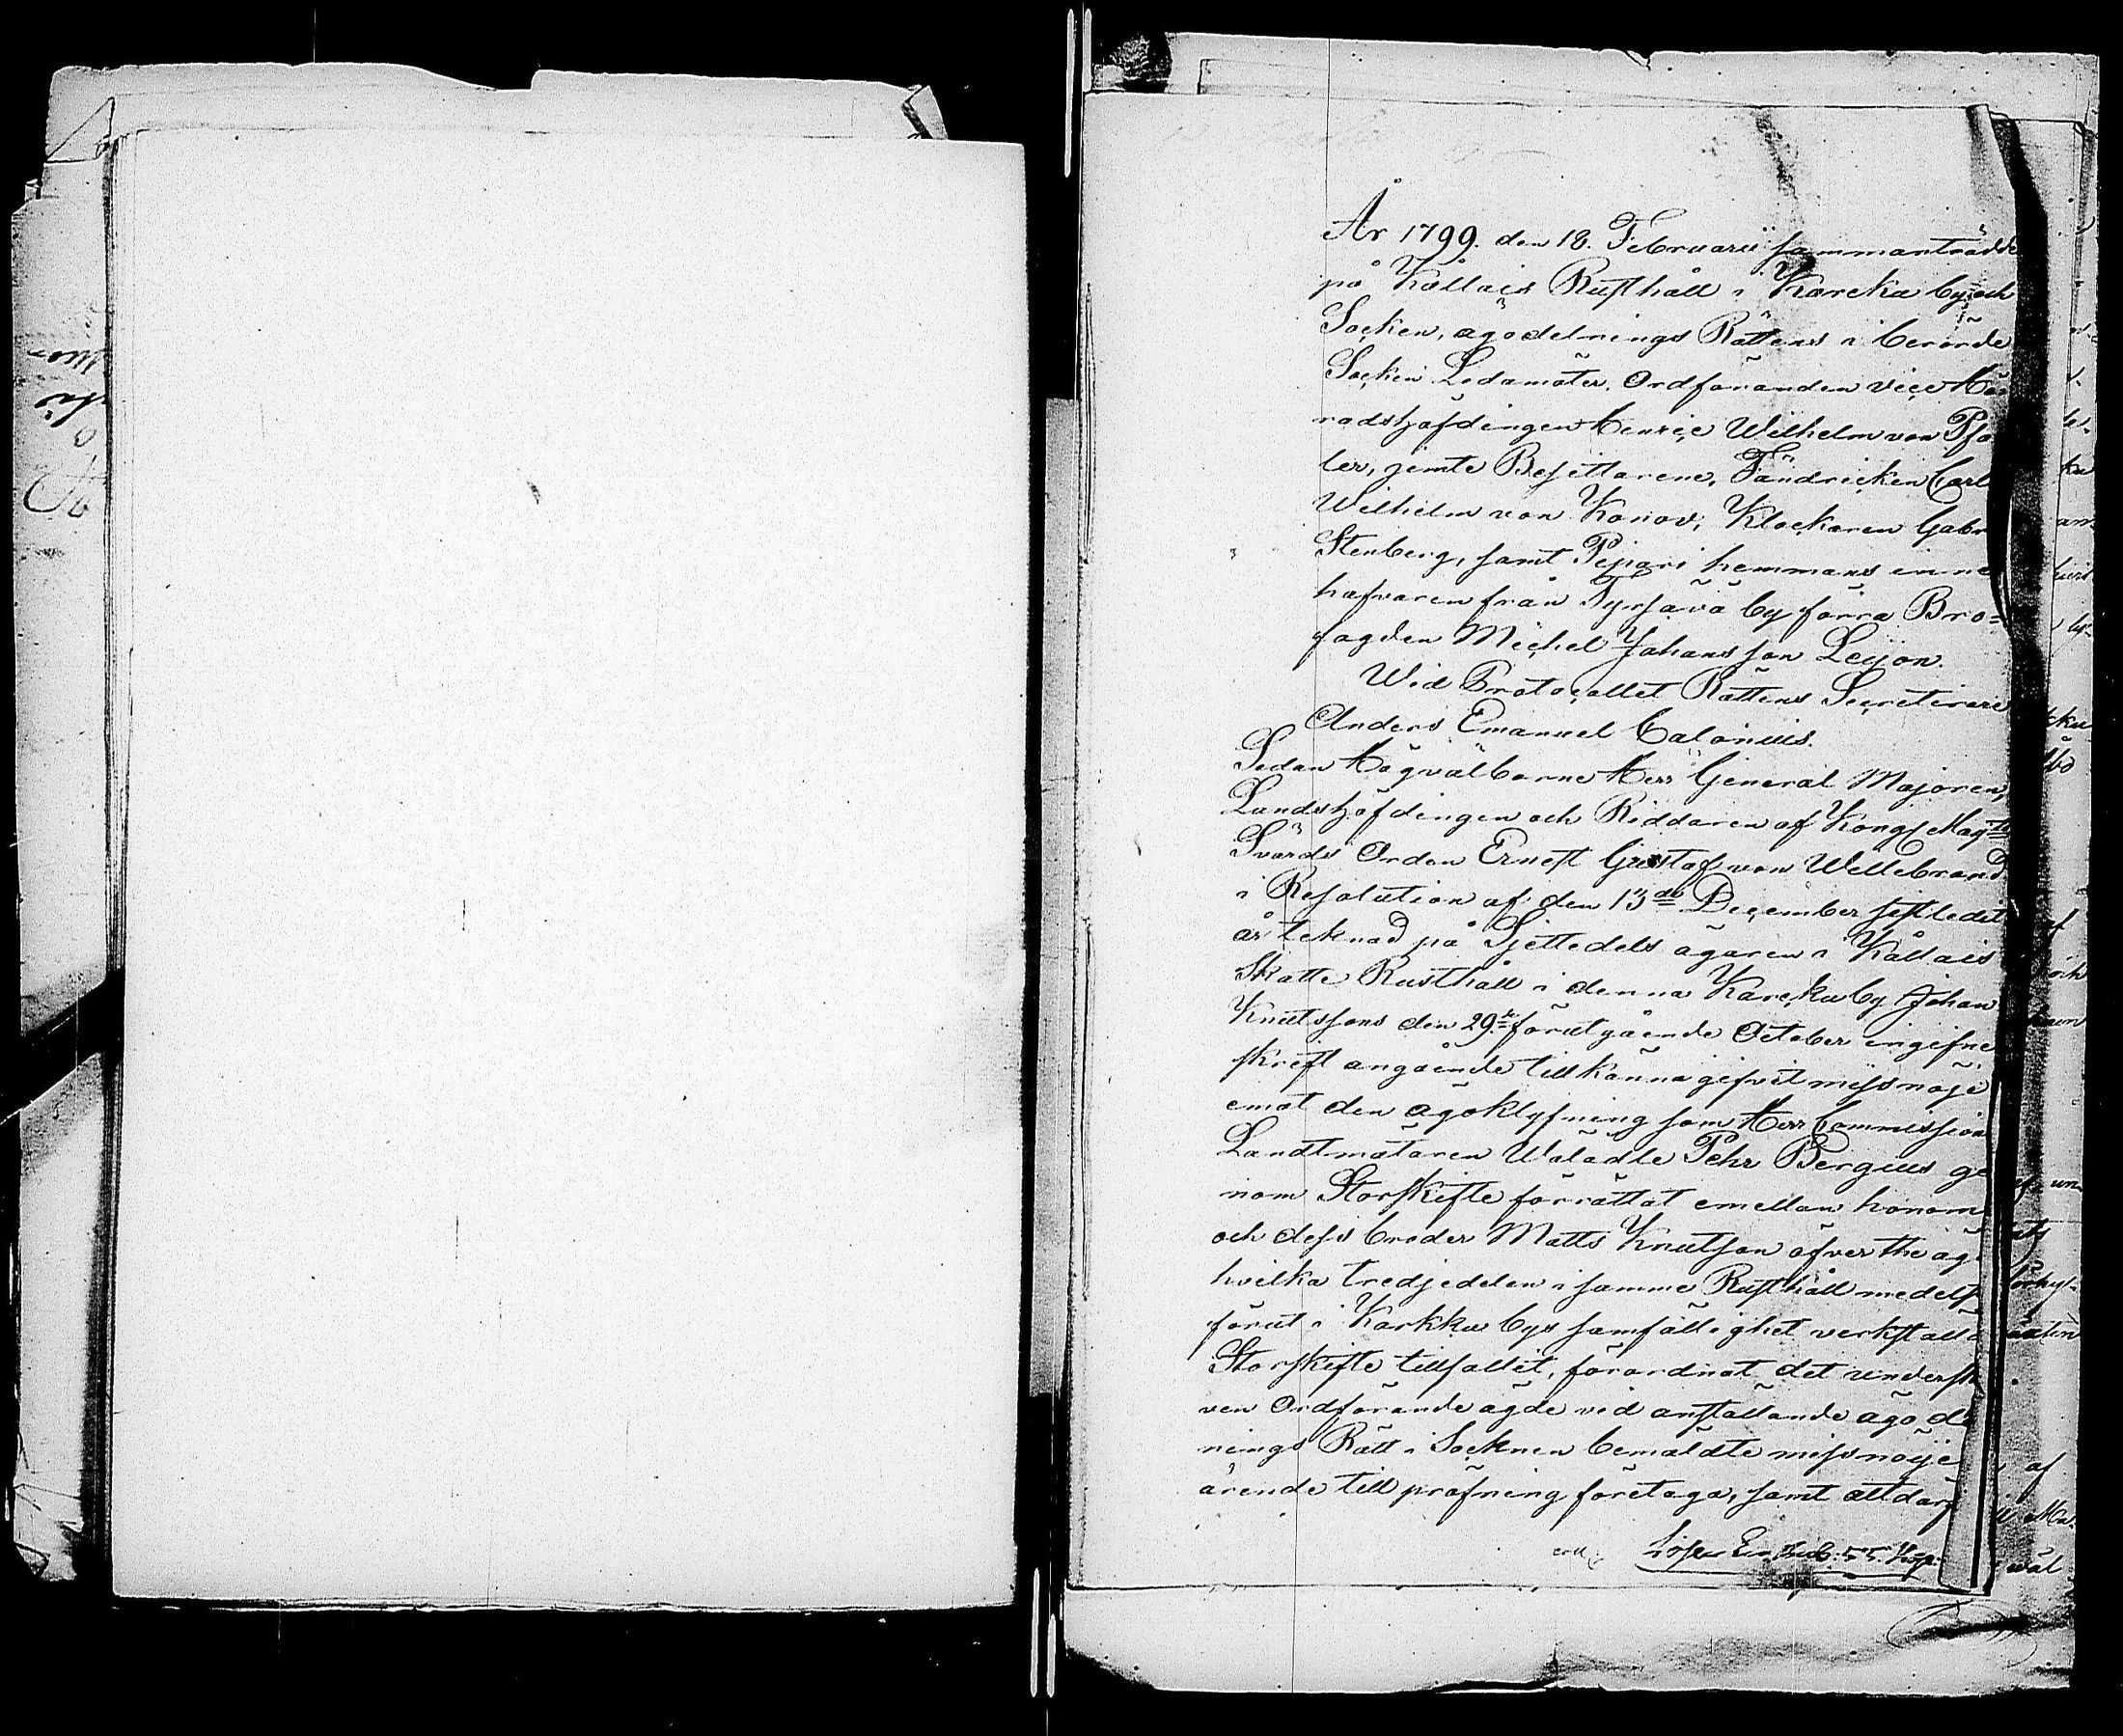 År 1799. den 18. Februarii sammanträdde
på Kållais Rusthåll i Karcku by och
Socken, ägodelnings Rättens i berörde
Socken Ledamöter, Ordföranden vice Hä-
radshöfdingen Henric Wilhelm von Pfa
ler, jemte Besittarene, Fändricken Carl
Wilhelm von Konov, Klockaren Gabr
Stenberg, samt Pipari hemmans inne
hafvaren från Tyrjävä by förra Bro=
fogden Michel Johansson Leijon.
Wid Protocollet Rättens Secreterare
Anders Emanuel Calonius.
Sedan Högvälborne Herr General Majoren,
Landshöfdingen och Riddaren af Kongl Maijts
Svärds Orden Ernst Gustaf von Willebrand
i Resolution af den 13de December sistledit
år tecknad på Sjettedels ägaren i Kållais
Skatte Rusthåll i denna Karcku by Johan
Knutssons den 29de förutgående October ingifne
skrift angående tillkänna gifvit missnöje
emot den ägoklyfning som Herr Commission
Landtmätaren Wälädle Pehr Bergius ge
nom Storskifte förrättat emellan honom
och dess broder Matts Knutson öfver the äg
hvilka tredjedelen i samme Rusthåll medelst
förut i Karkku bys samfällighet verkställd
Storskifte tillfallit, förordnat det underskr
ven Ordförande ägde vid anställande ägo del
nings Rätt i Socknen bemäldte missnöje
ärende till pröfning företaga, samt alt der
Lösen En Rub. 55. Kop.